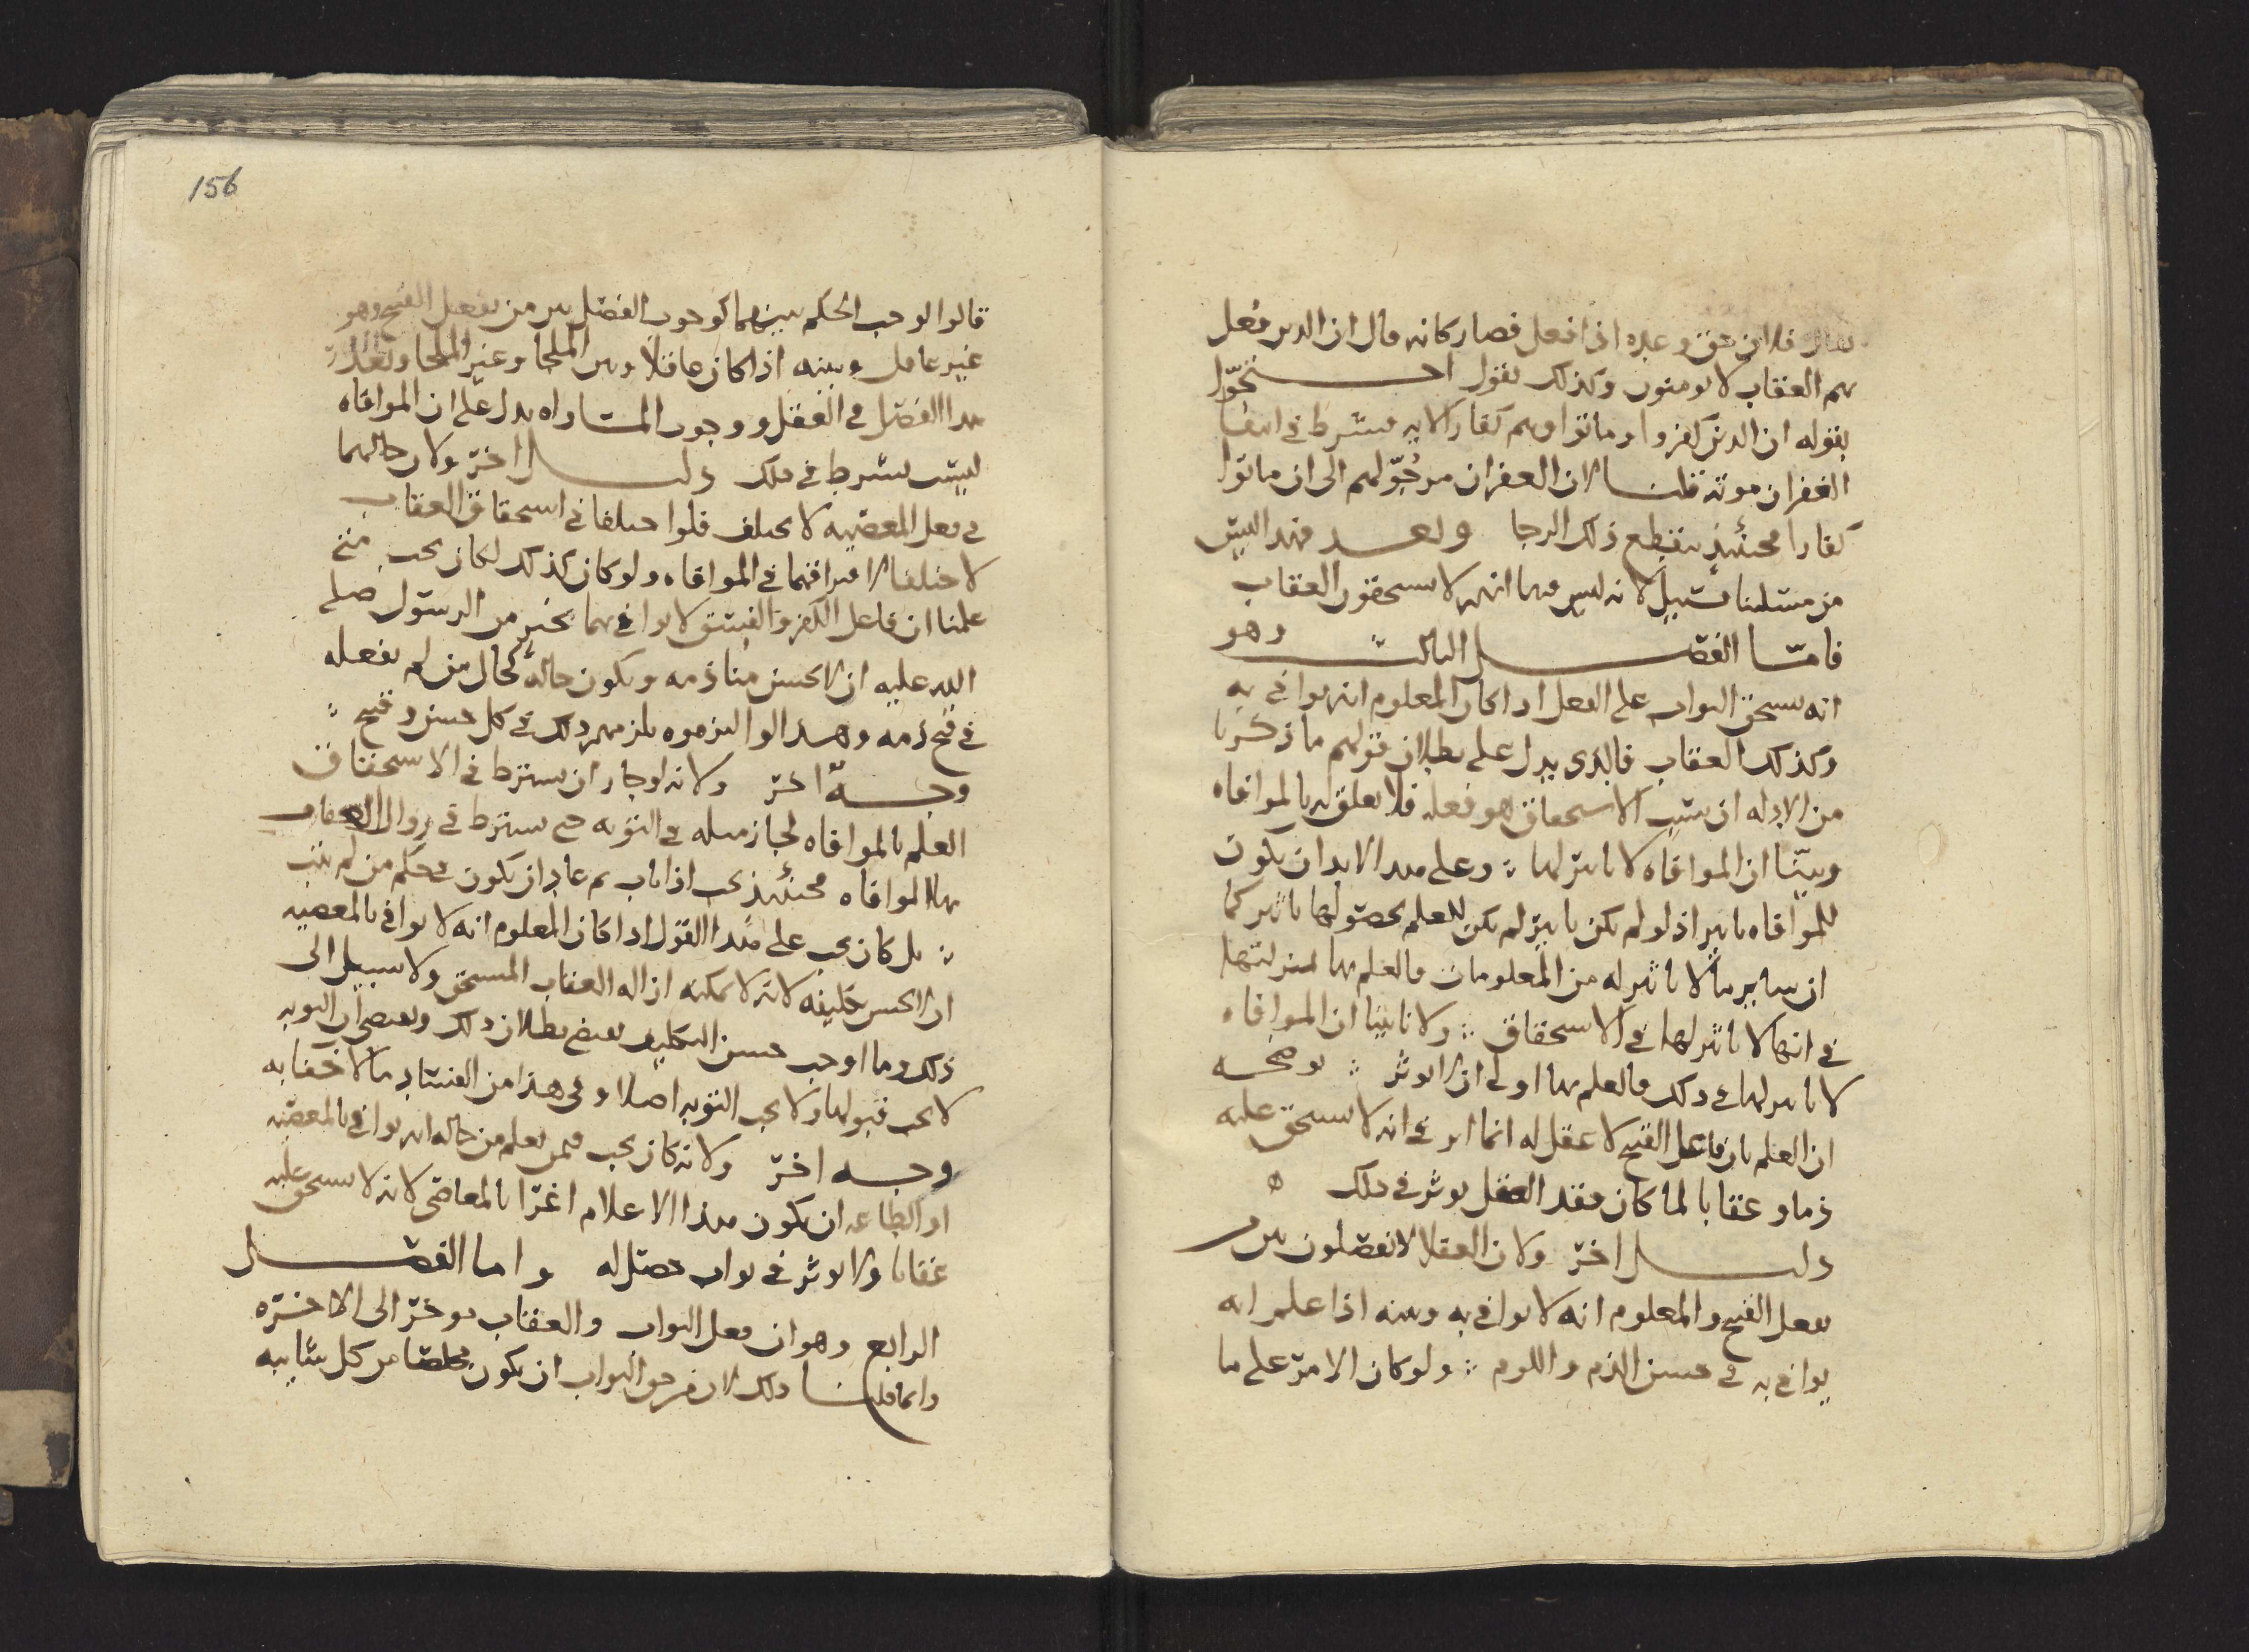 فلان حق وعيده اذا فعل فصار كانه قال ان الذين فعل
بهم العقاب لا يومنون وكذلك نقول
بقوله ان الذين كفروا وماتوا وهم كفار الايه فشرط في انتفا
الغفران موته قلنا لان الغفران مرجو لهم الى ان ماتوا
كفارا فحينئذ ينقطع ذلك الرجا وبعد فهذا ليس
من مسئلتنا بسبيل لانه ليس فيها انهم لا يستحقون العقاب
فامّا الفصل الثالث وهو
انه يستحق الثواب على الفعل اذا كان المعلوم انه يوافي به
وكذلك العقاب فالذي يدل على بطلان قولهم ما ذكرنا
من الادله ان سبب الاستحقاق هو فعله فلا تعلق له بالموافاه
وبيّنا ان الموافاه لا تاثير لها وعلى هذا لا بد ان يكون
للموافاه تاثير اذ لو لم يكن تاثير لم يكن للعلم بحصولها تاثير كما
ان ساير ما لا تاثير له من المعلومات فالعلم بها بمنزلتها
في انها لا تاثير لها في الاستحقاق ولانا بينا ان الموافاه
لا تاثير لها في ذلك فالعلم بها اولى ان لا يوثر يوضحه
ان العلم بان فاعل القبيح لا عقل له انما اثر في انه لا يستحق عليه
ذما وعقابا لما كان فقد العقل يوثر في ذلك
دليل اخر ولان العقلا لا يفصلون بين من
يفعل القبيح والمعلوم انه لا يوافي به وبينه اذا علم انه
يوافي به في حسن الذم واللوم ولو كان الامر على ما
156
قالوا لوجب الحكم بينهما كوجوب الفصل بين من يفعل القبيح وهو
غير عاقل وبينه اذا كان عاقلا وبين الملجا وغير الملجا وتعذر
هذا الفصل في العقل ووجوب المساواه يدل على ان الموافاه
ليست بشرط في ذلك دليل اخر ولان حالهما
في فعل المعصيه لا يختلف فلو اختلفا في استحقاق العقاب
لاختلفا لافتراقهما في الموافاه ولو كان كذلك لكان يجب متى
علمنا ان فاعل الكفر والفسق لا يوافي بهما بخبر من الرسول صلى
الله عليه ان لا يحسن منا ذمه ويكون حاله كحال من لم يفعله
في قبح ذمه وهذا لو التزموه يلزمهم ذلك في كل حسن وقبيح
وجه اخر ولانه لو جاز ان يشترط في الاستحقاق
العلم بالموافاه لجاز مثله في التوبه حتى يشترط في زوال العقاب
بها الموافاه فحينئذ يجب اذا تاب ثم عاد ان يكون في حكم من لم يتب
بل كان يجب على هذا القول اذا كان المعلوم انه لا يوافي بالمعصيه
ان لا يحسن تكليفه لانه لا يمكنه ازاله العقاب المستحق ولا سبيل الى
ذلك وما اوجب حسن التكليف يقتضي بطلان ذلك ويقتضي ان التوبه
لا يجب قبولها ولا يجب التوبه اصلا وفي هذا من الفساد ما لا خفا به
وجه اخر ولانه كان يجب فيمن يعلم من حاله انه يوافي بالمعصيه
او الطاعه ان يكون هذا الاعلام اغرا بالمعاصي لانه لا يستحق عليه
عقابا ولا يوثر في ثواب حصل له واما الفصل
الرابع وهو ان فعل الثواب والعقاب يوخر الى الاخره
وانما قلنا ذلك لان من حق الثواب ان يكون مخلصا من كل شايبه